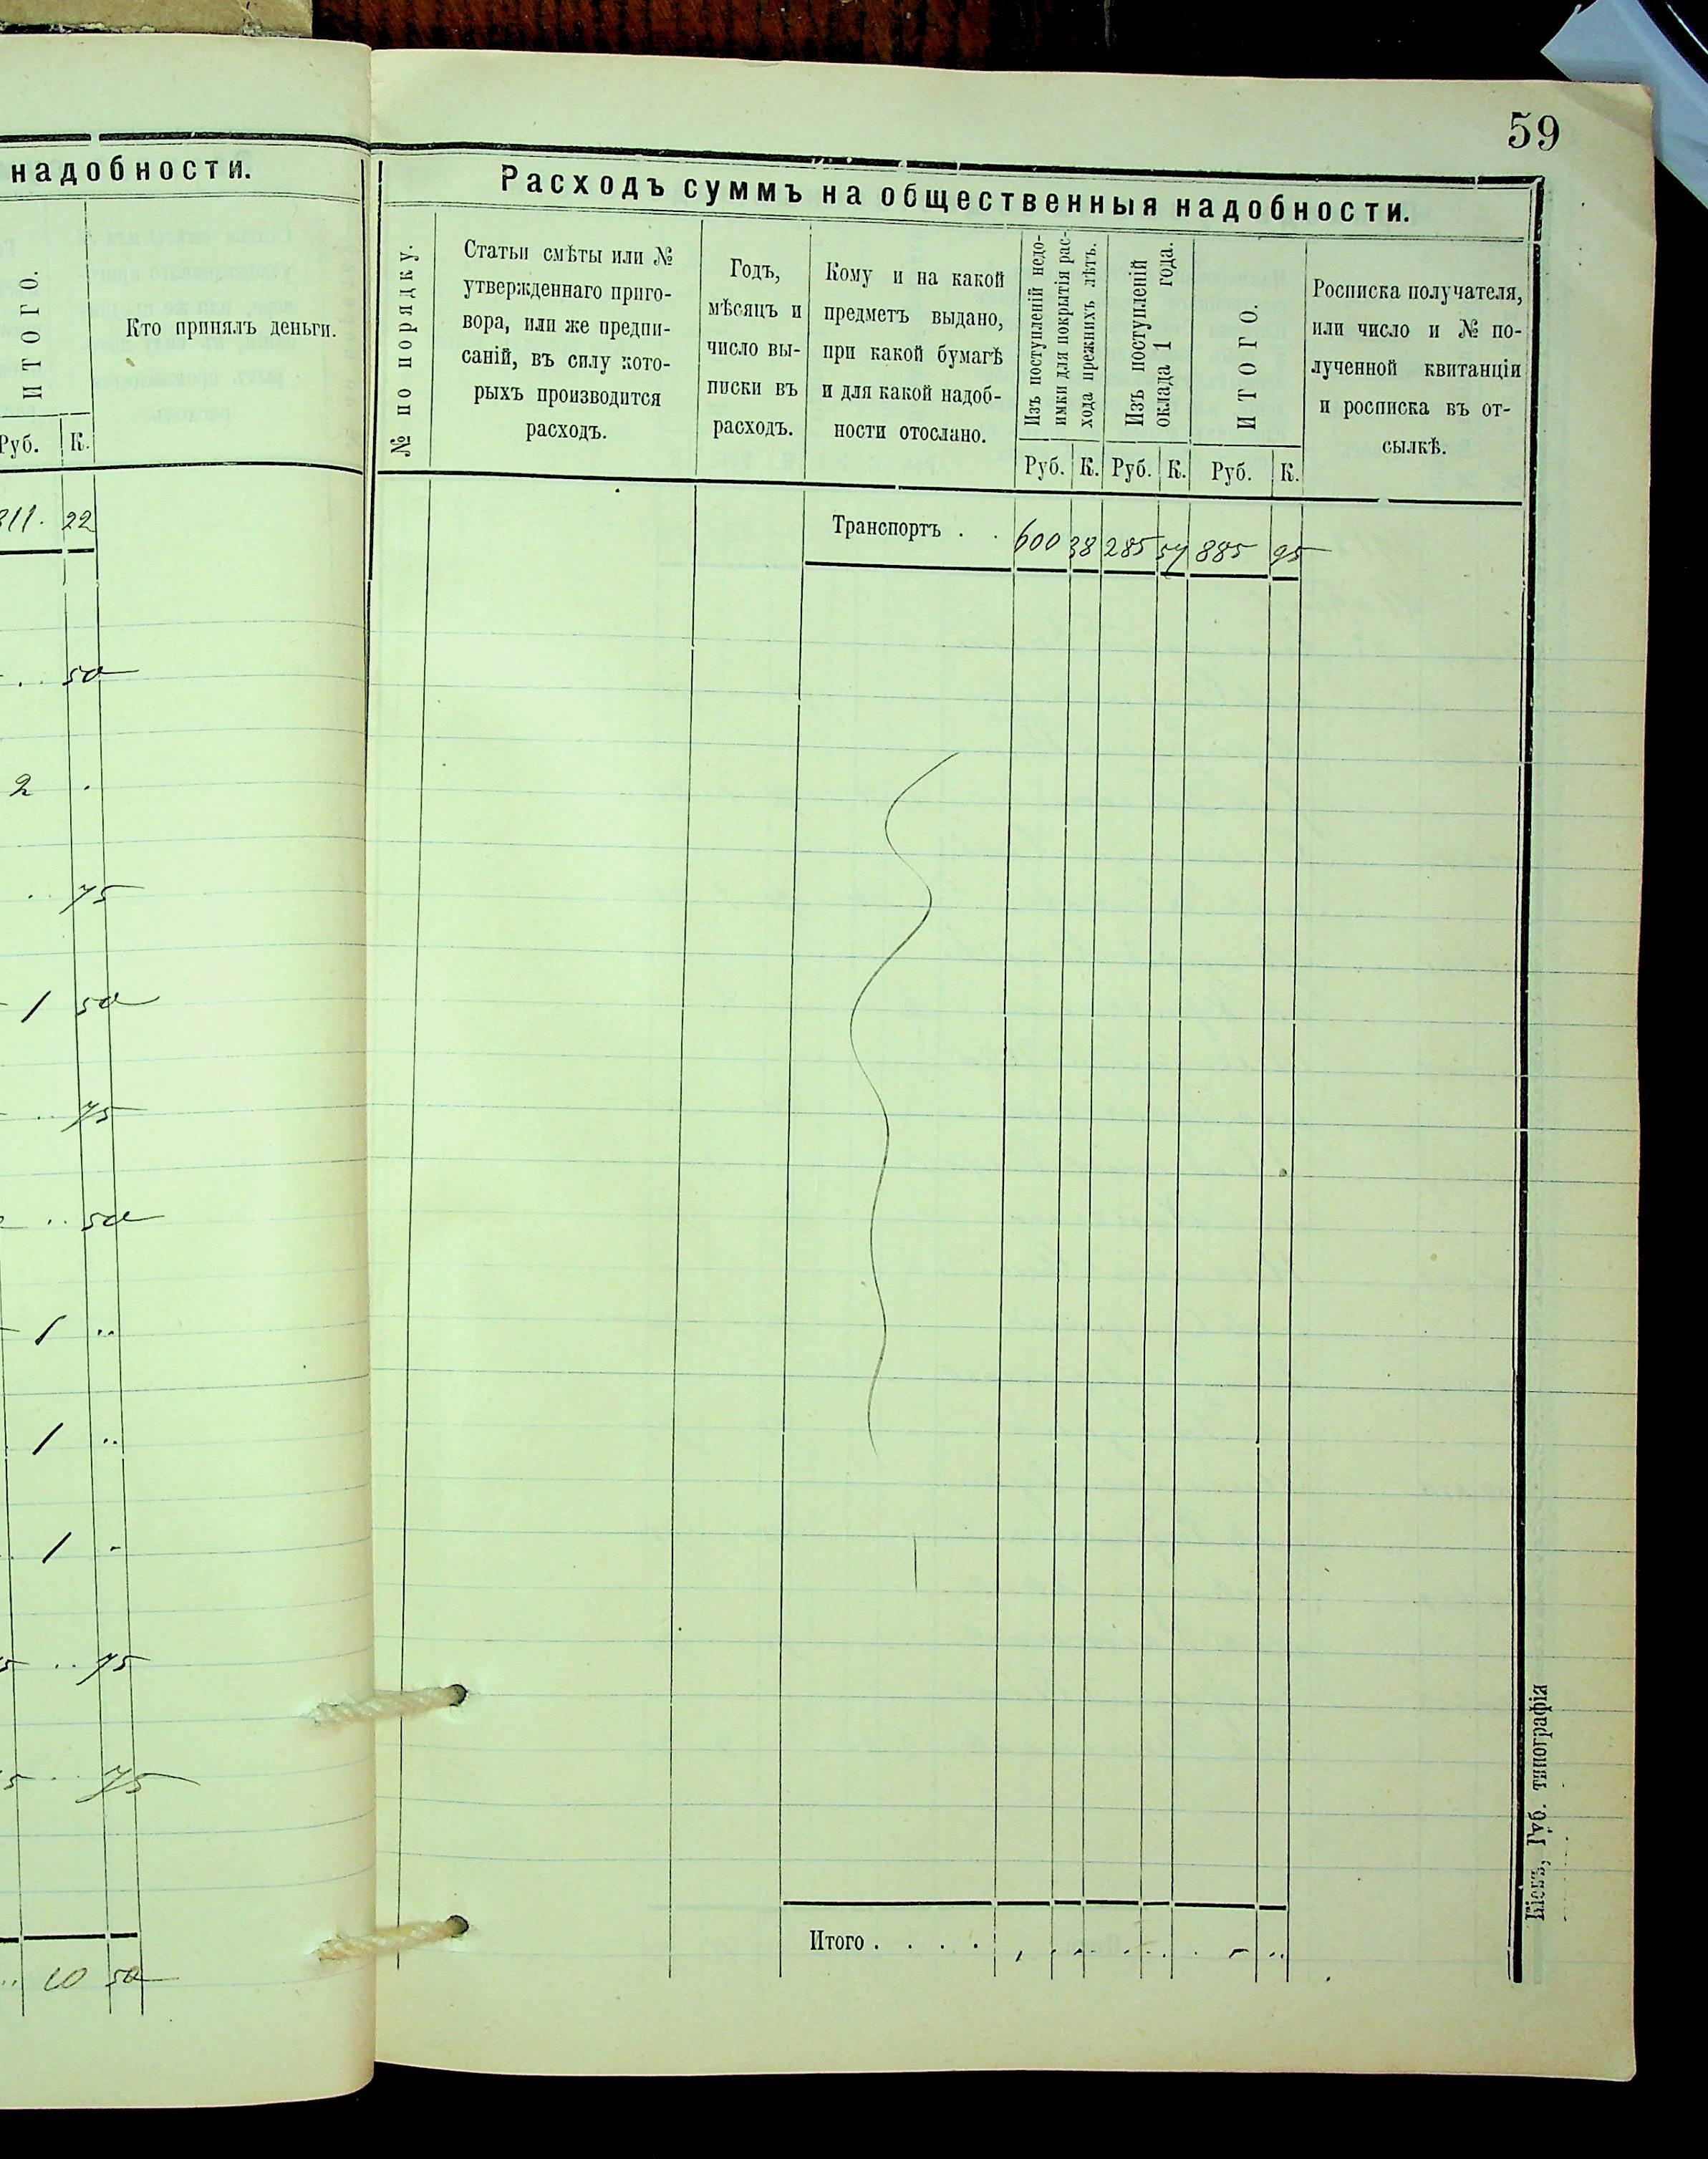 59
надобности.
ИТОГО.
Кто принялъ деньги.
Руб. К.
811. 22
. . 50
2 .
. . 75
1 50
. . 75
. . 50
1 ..
1 ..
1 -
. . 75
5 . . 75
.. 10 50
Расходъ суммъ на общественныя надобности.
№ по порядку.
Статьи смѣты или №
утвержденнаго приго-
вора, или же предпи-
саній, въ силу кото-
рыхъ производится
расходъ.
Годъ,
мѣсяцъ и
число вы-
писки въ
расходъ.
Кому и на какой
предметъ выдано,
при какой бумагѣ
и для какой надоб-
ности отослано.
Изъ поступленій недо-
имки для покрытія рас-
хода прежнихъ лѣтъ.
Изъ поступленій
оклада 1 года.
ИТОГО.
Росписка получателя,
или число и № по-
лученной квитанціи
и росписка въ от-
сылкѣ.
Руб. К. Руб. К. Руб. К.
Транспортъ . . 600 38 285 57 885 95
Итого . . . .
Кіевъ, Губ. типографія